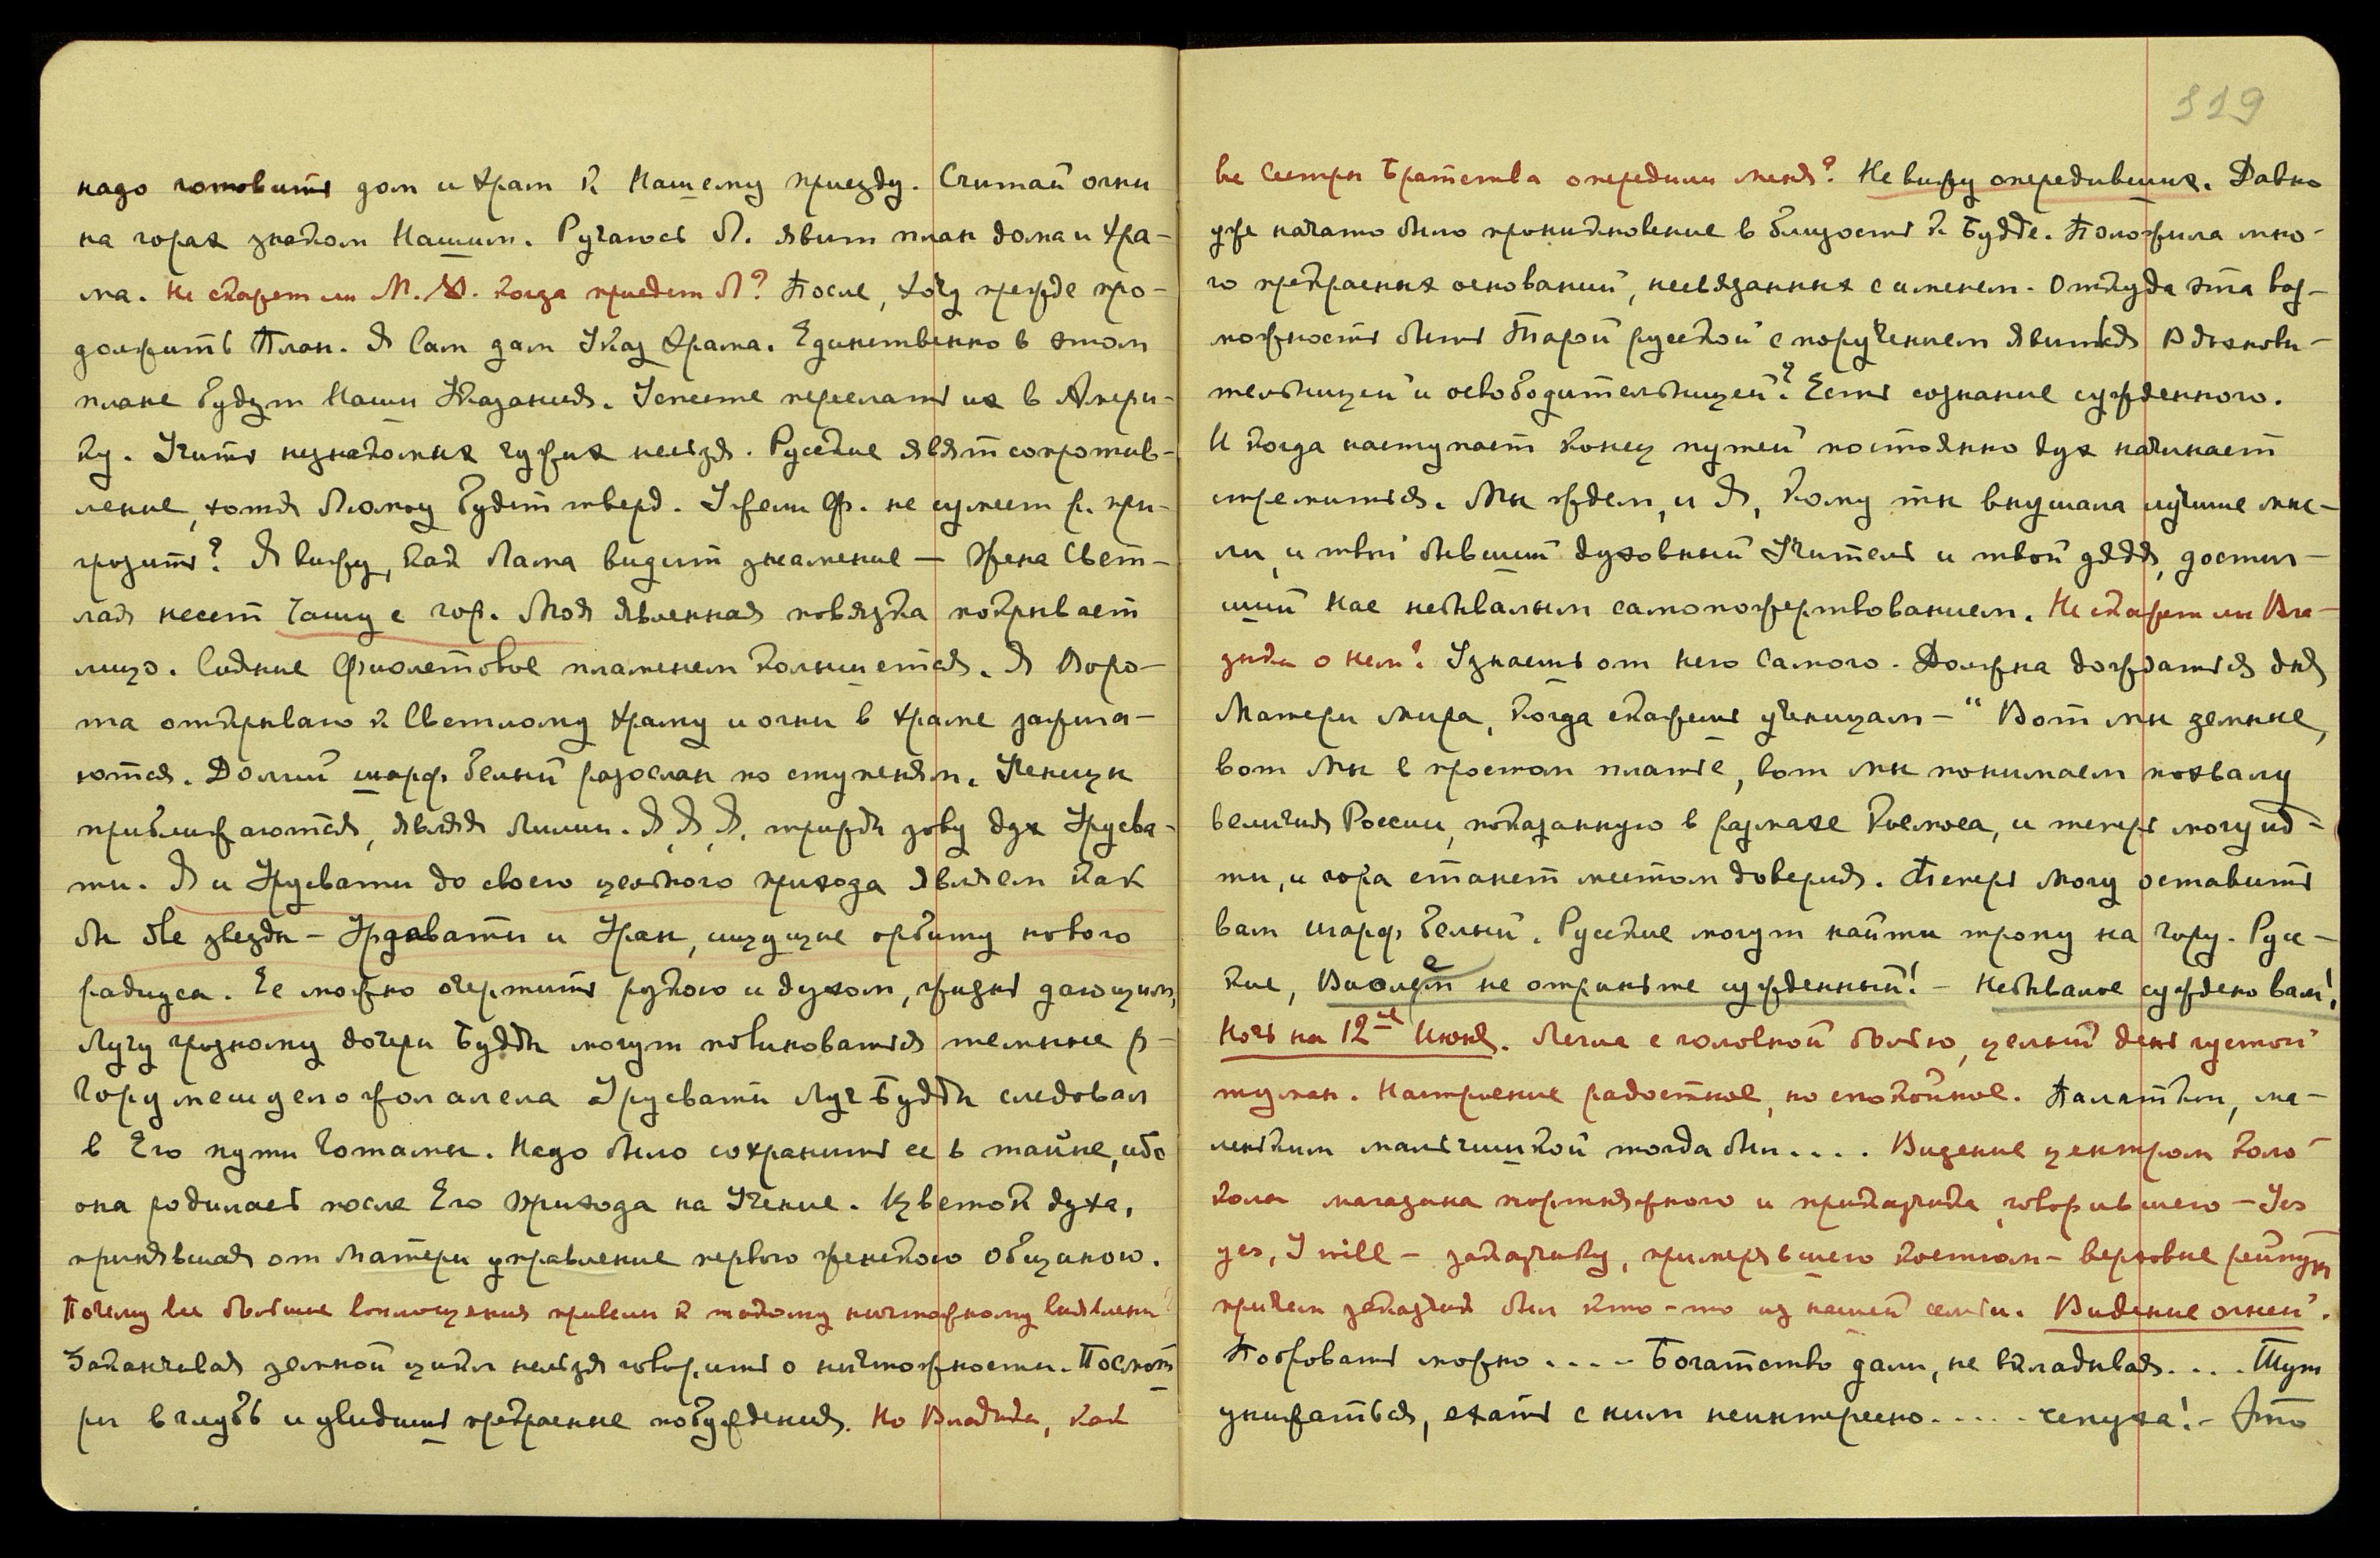 надо готовить дом и храм к Нашему приезду. Считай огни
на горах знаком Нашим. Ручаюсь Л. явит план дома и хра-
ма. Не скажет ли М. когда приедет Л? После, хочу прежде про-
должить План. Я Сам дам Указ Храма. Единственно в этом
плане будут Наши Указания. Успеете переслать их в Амери-
ку. Учить незнакомых чужих нельзя. Русские явят сопротив-
ление, хотя будет тверд. Ужели Ф. не сумеет р. при-
грозить? Я вижу, как Лама видит знамение — Жена Свет-
лая несет Чашу с гор. Моя явленная повязка покрывает
лицо. Сияние фиолетовое пламенем колышется. Я Воро-
та открываю к Светлому Храму и огни в храме зажига-
ются. Долгий шарф белый разослан по ступеням. Ученицы
приближаются, являя Лилии. Я, Я, Я, трижды зову дух Урусва-
ти. Я и Урусвати до своего целого прихода являем как
бы две звезды — Урдавати и Уран, ищущие орбиту нового
радиуса. Ее можно очертить рукою и духом, жизнь дающим,
Лучу грозному дочери Будды могут повиноваться темные р-
Гору алела Урусвати Луч Будды следовал
в Его пути Готамы. Надо было сохранить ее в тайне, ибо
она родилась после Его прихода на Учение. Цветок духа,
принявшая от Матери управление первого женского общиною.
Почему все бывшие воплощения привели к такому ничтожному
Заканчивая земной цикл нельзя говорить о ничтожности. Посмот
ри в глубь и увидишь прекрасные побуждения. Но Владыка, как
119
все Сестры Братства опередили меня? Не вижу опередивших. Давно
уже начато было проникновение в близость к Будде. Положила мно-
го прекрасных оснований, несвязанных с именем. Откуда эта воз-
можность быть Тарой русской с поручением явиться Вдохнови-
тельницей и освободительницей? Есть сознание сужденного.
И когда наступает конец путей постоянно дух начинает
стремиться. Мы ждем, и Я, Кому ты внушала лучшие мыс-
ли, и твой бывший духовный Учитель и твой дядя, достиг-
ший Нас небывалым самопожертвованием. Не скажет ли Вла-
дыка о Нем? Узнаешь от Него Самого. Должна дождаться дня
Матери Мира, когда скажешь ученицам — "Вот мы земные,
вот мы в простом платье, вот мы понимаем похвалу
величия России, показанную в размахе Космоса, и теперь могу ид-
ти, и гора станет местом доверия. Теперь могу оставить
вам шарф белый. Русские могут найти тропу на Гору. Рус-
кие, не отриньте сужденный! — Небывалое суждено вам!
Ночь на 12ое Июня. Легла с головной болью, целый день густой
туман. Настроение радостное, но спокойное. Палатки, ма-
леньким мальчишкой тогда был.... Видение центром коло
кола магазина портняжного и приказчика, говорившего — Yes
yes, I will — заказчику, примерявшего костюм — верховые рейтузы
причем заказчик был кто-то из нашей семьи. Видение огней.
Попробовать можно.... Богатство дали, не вкладывая.... Тут
унижаться, ехать с ним неинтересно..... чепуха! — Это